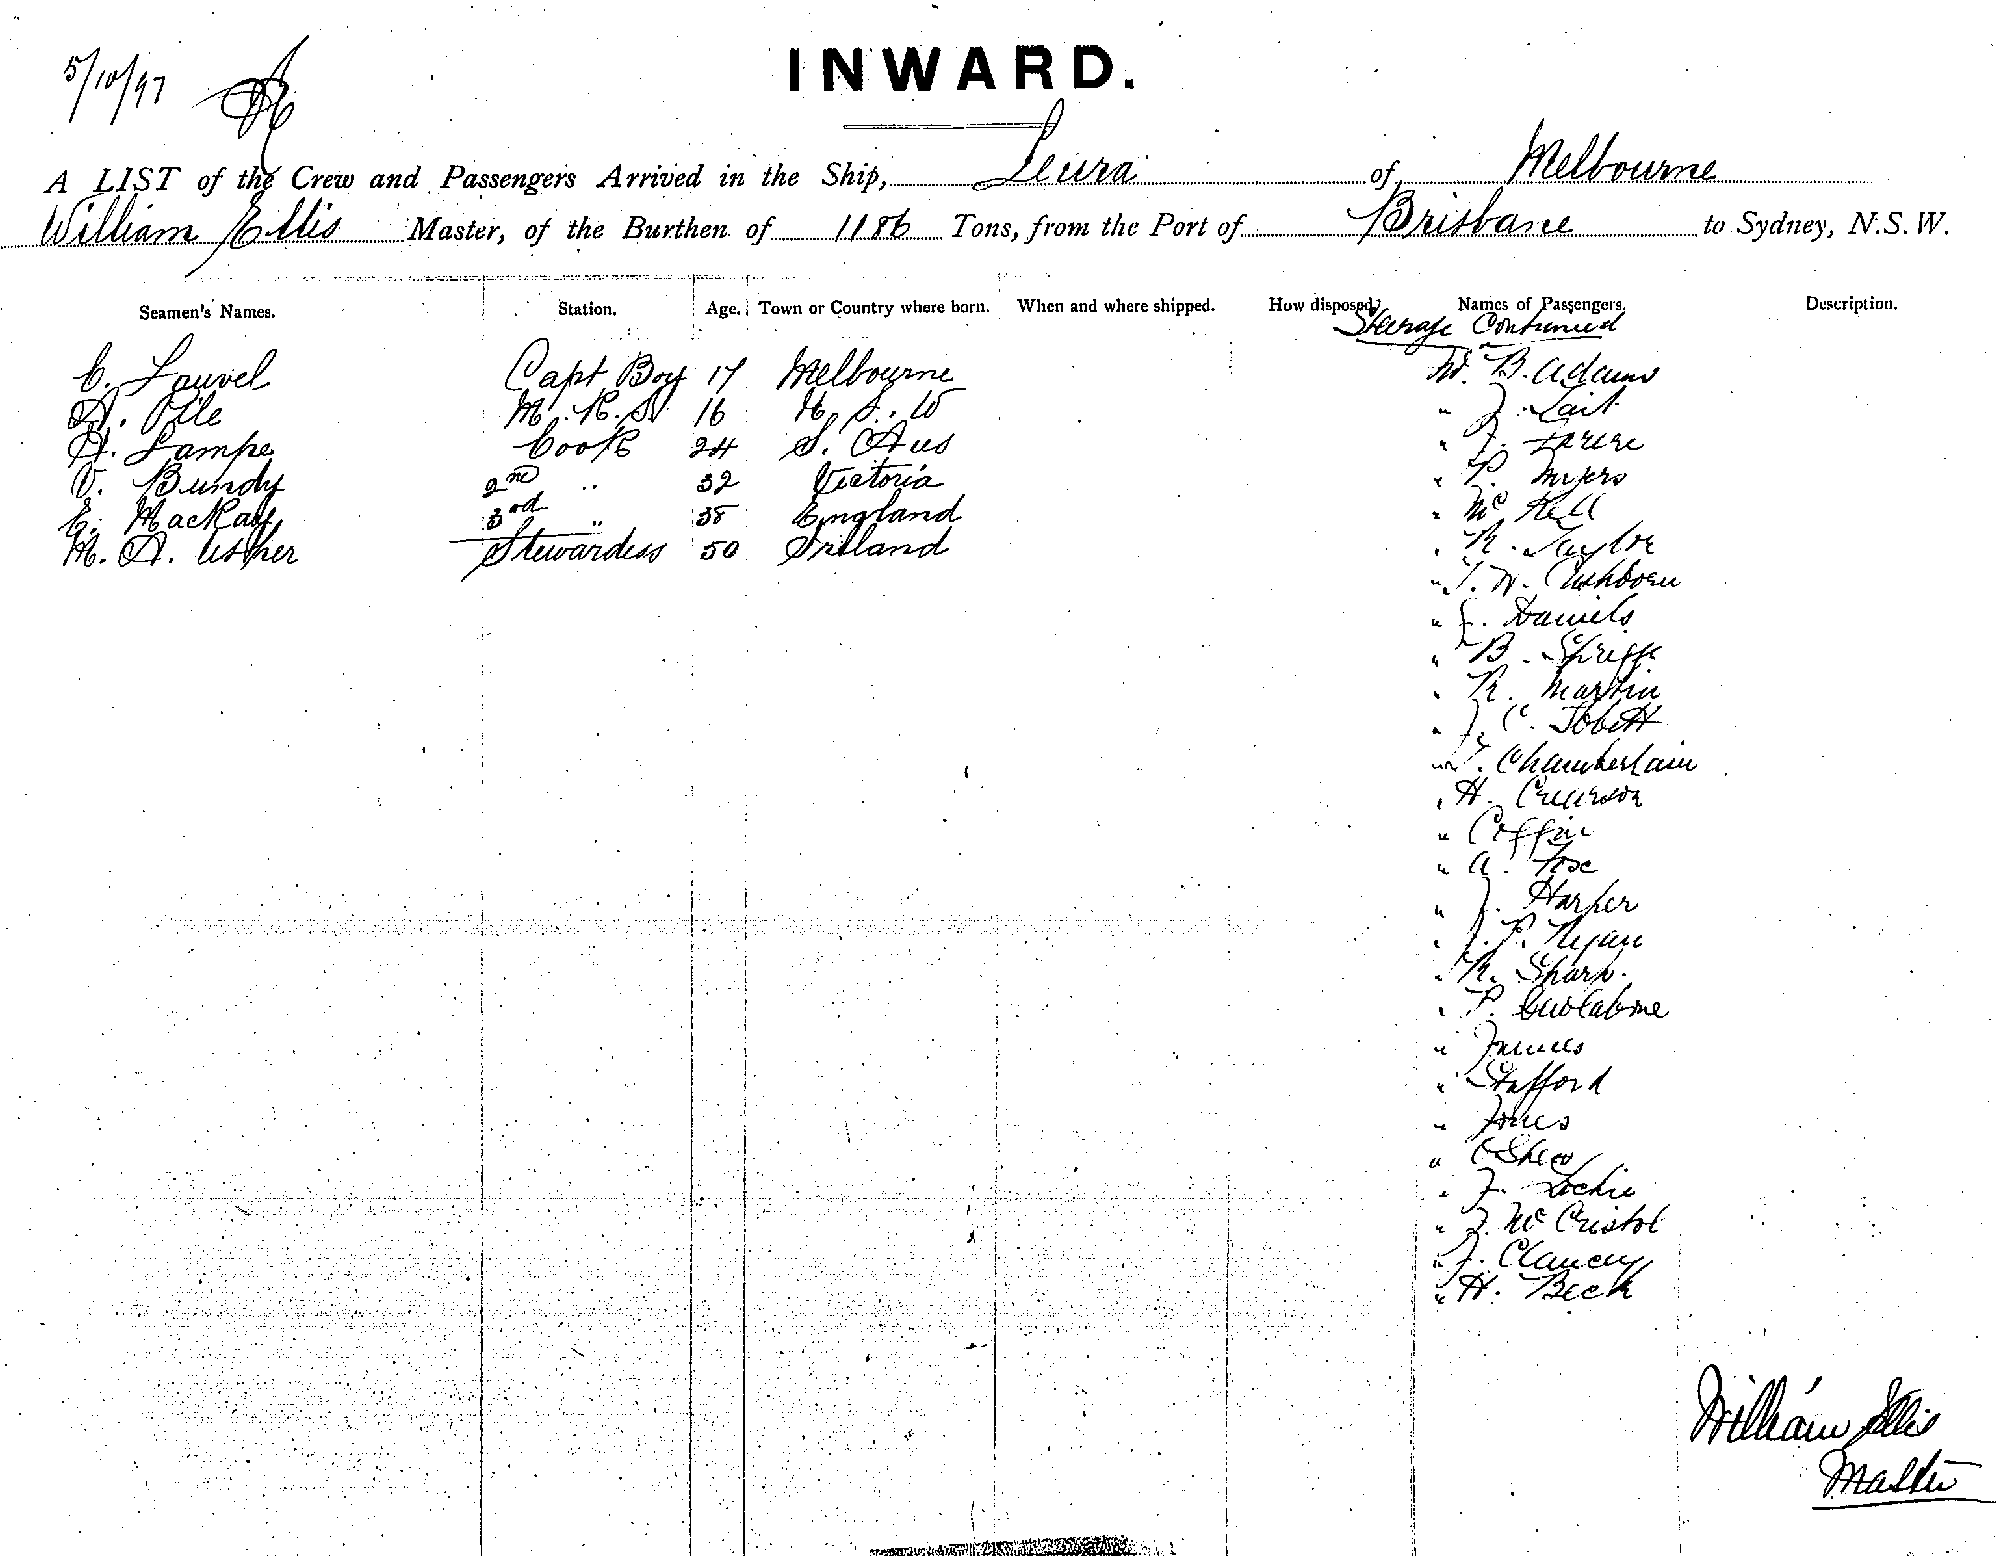 5/10/97
INWARD.
A LIST of the Crew and Passengers Arrived in the Ship, Leura of Melbourne
William Ellis Master, of the Burthen of 1186 Tons, from the Port of Brisbane to Sydney, N.S.W.
Seamen's Names. Station. Age. Town or Country where born. When and where shipped. How disposed. Names of Passengers. Description.
Steerage Continued
C. Lauvel Capt Boy 17 Melbourne
A. Pile M.R.S. 16 N.S.W
A. Lampe Cook 24 S. Aus
V. Bundy 2nd " 32 Victoria
E. MacKay 3rd " 38 England
M. A. Usher Stewardess 50 Ireland
M. B. Adams
" J. Lait
" J.
" P. Myers
" Mc
" R. Taylor
" T. W.
" J. Daniels
" B.
" R. Martin
" J. C. Tobett
" Chamberlain
" H.
" Coffin
" A.
" J. Harper
" J. P. Ryan
" R. Sharp.
" P.
" James
" Stafford
" Jones
" O'Shea
" J. Lockie
" J. Mc Cristol
" J. Clancey
" H. Beck
William Ellis
Master